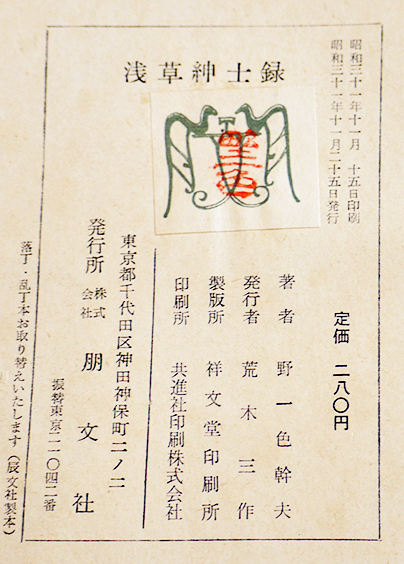 浅草紳士録
昭和三十一年十一月 十五日印刷
昭和三十一年十一月二十五日発行
定価 二八〇円
著者 野一色幹夫
発行者 荒木三作
製版所 祥文堂印刷所
印刷所 共進社印刷株式会社
東京都千代田区神田神保町二ノ二
発行所 株式会社 朋文社
振替東京二一〇四二番
落丁・乱丁本お取り替えいたします（辰文社製本）